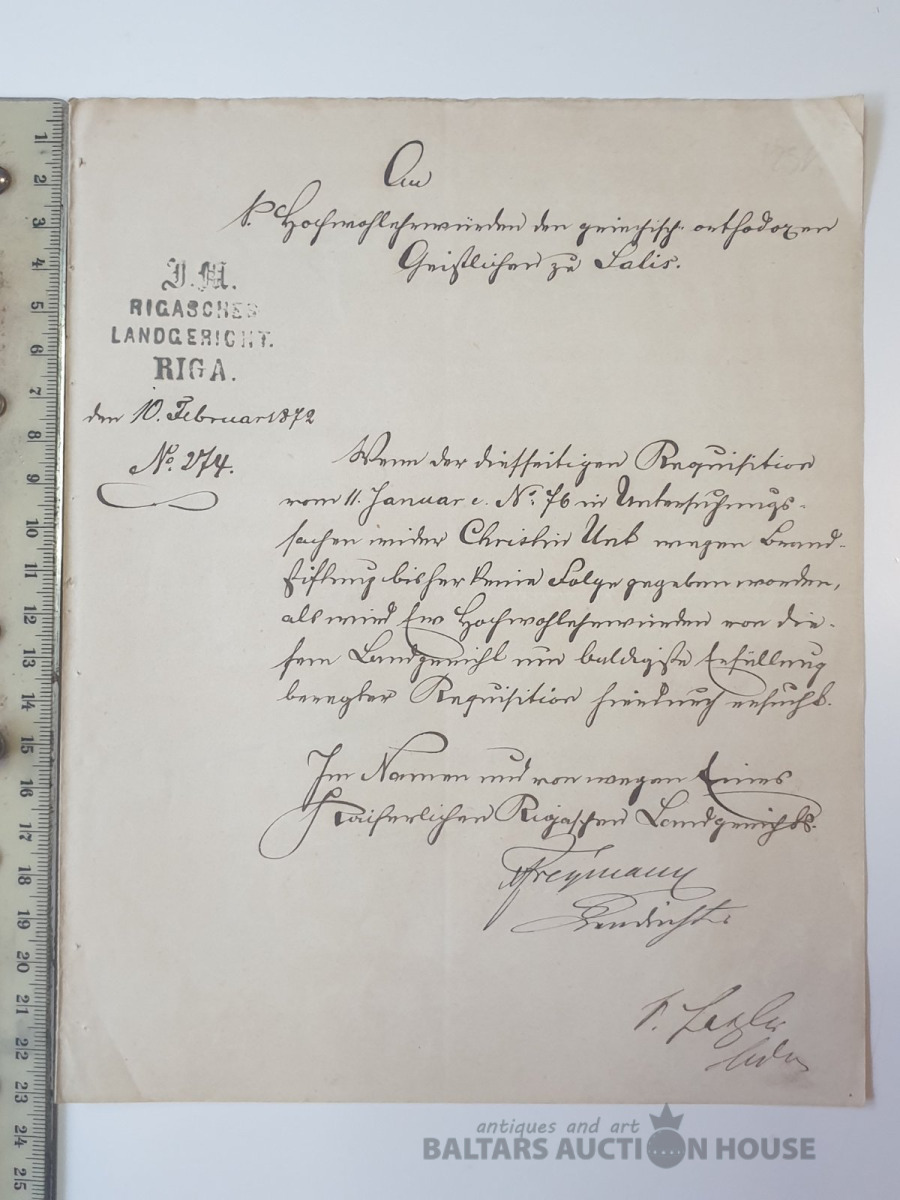 An
S. Hochwohlehrwürden den griechisch-orthodoxen
Geistlichen zu Salis.
J. M.
RIGASCHES
LANDGERICHT.
RIGA.
den 10. Februar 1872
No. 274.
Wenn der diesseitigen Requisition
vom 11. Januar c. No. 76 in Untersuchungs-
sachen wider Christin Unt wegen Brand-
stiftung bisher keine Folge gegeben worden,
als wird Ew Hochwohlehrwürden von die-
sem Landgericht um baldigste Erfüllung
beregter Requisition hierdurch ersucht.
Im Namen und von wegen Eines
Kaiserlichen Rigaschen Landgerichts.
Freymann
1
2
3
4
5
6
7
8
9
10
11
12
13
14
15
16
17
18
19
20
21
22
23
24
25
antiques and art
BALTARS AUCTION HOUSE